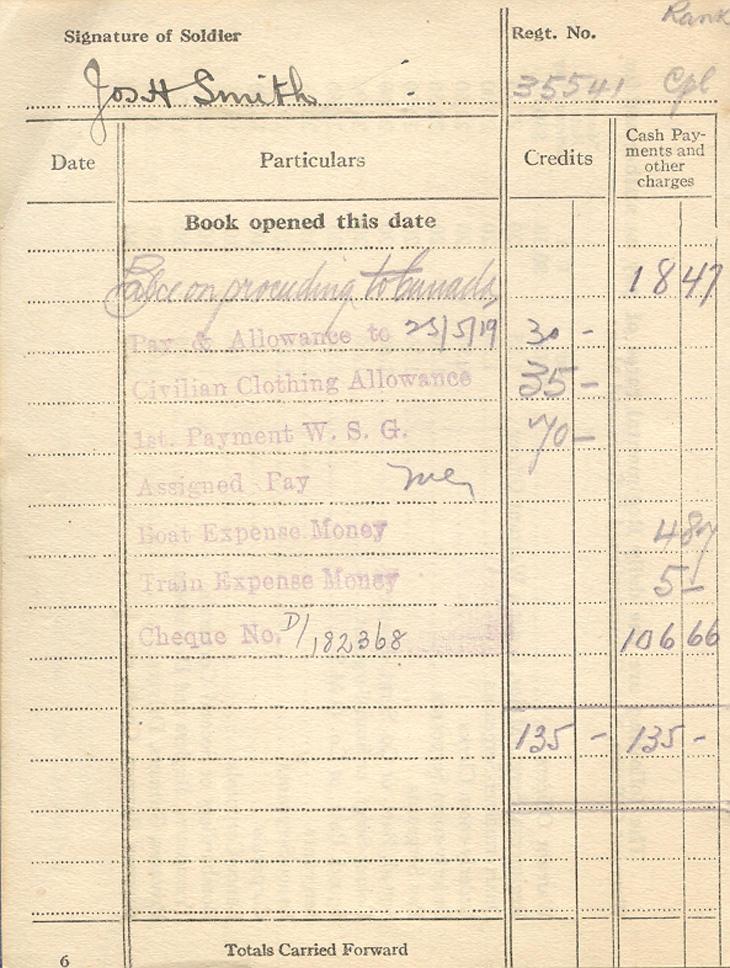 Rank
Signature of Soldier Regt. No.
Jos H Smith 35541 Cpl
Date Particulars Credits Cash Pay-
ments and
other
charges
Book opened this date
on proceeding to Canada 18 47
Pay & Allowance to 25/5/19 30 -
Civilian Clothing Allowance 35 -
1st. Payment W. S. G. 70 -
Assigned Pay
Boat Expense Money 4 87
Train Expense Money 5 -
Cheque No. D/182368 106 66
135 - 135 -
Totals Carried Forward
6